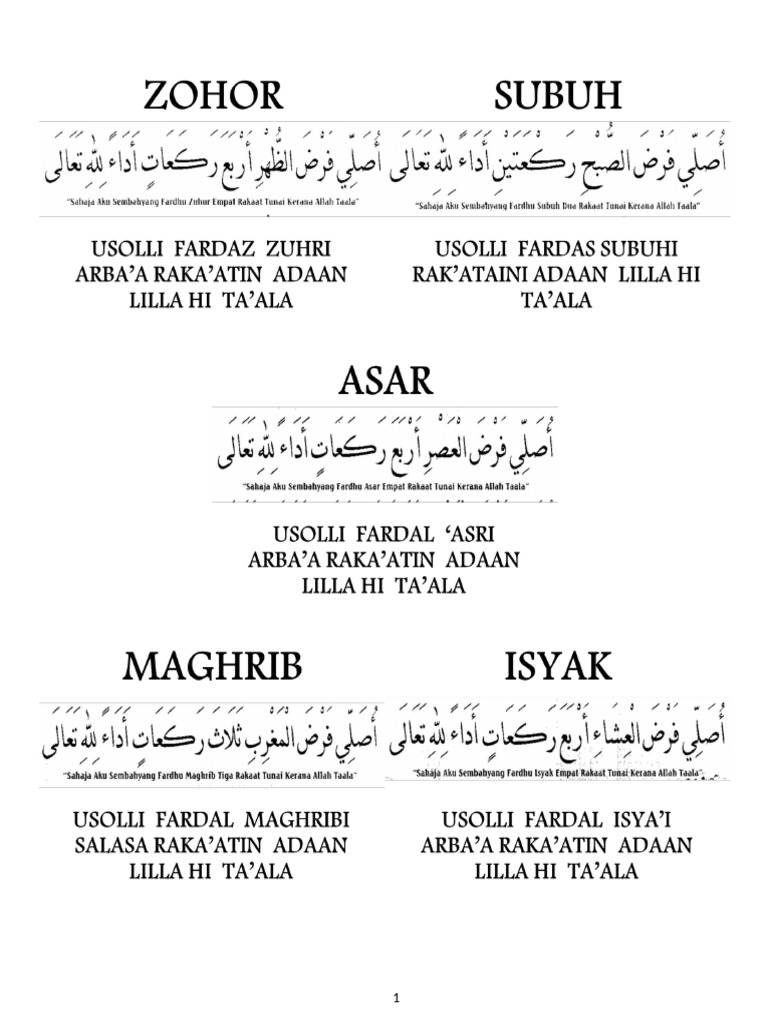 ZOHOR
أُصَلِّي فَرْضَ الظُّهْرِ أَرْبَعَ رَكَعَاتٍ أَدَاءً لِلَّهِ تَعَالَى
"Sahaja Aku Sembahyang Fardhu Zuhur Empat Rakaat Tunai Kerana Allah Taala"
USOLLI FARDAZ ZUHRI
ARBA’A RAKA’ATIN ADAAN
LILLA HI TA’ALA
SUBUH
أُصَلِّي فَرْضَ الصُّبْحِ رَكْعَتَيْنِ أَدَاءً لِلَّهِ تَعَالَى
"Sahaja Aku Sembahyang Fardhu Subuh Dua Rakaat Tunai Kerana Allah Taala"
USOLLI FARDAS SUBUHI
RAK’ATAINI ADAAN LILLA HI
TA’ALA
ASAR
أُصَلِّي فَرْضَ العَصْرِ أَرْبَعَ رَكَعَاتٍ أَدَاءً لِلَّهِ تَعَالَى
"Sahaja Aku Sembahyang Fardhu Asar Empat Rakaat Tunai Kerana Allah Taala"
USOLLI FARDAL ‘ASRI
ARBA’A RAKA’ATIN ADAAN
LILLA HI TA’ALA
MAGHRIB
أُصَلِّي فَرْضَ المَغْرِبِ ثَلَاثَ رَكَعَاتٍ أَدَاءً لِلَّهِ تَعَالَى
"Sahaja Aku Sembahyang Fardhu Maghrib Tiga Rakaat Tunai Kerana Allah Taala"
USOLLI FARDAL MAGHRIBI
SALASA RAKA’ATIN ADAAN
LILLA HI TA’ALA
ISYAK
أُصَلِّي فَرْضَ العِشَاءِ أَرْبَعَ رَكَعَاتٍ أَدَاءً لِلَّهِ تَعَالَى
"Sahaja Aku Sembahyang Fardhu Isyak Empat Rakaat Tunai Kerana Allah Taala"
USOLLI FARDAL ISYA’I
ARBA’A RAKA’ATIN ADAAN
LILLA HI TA’ALA
1